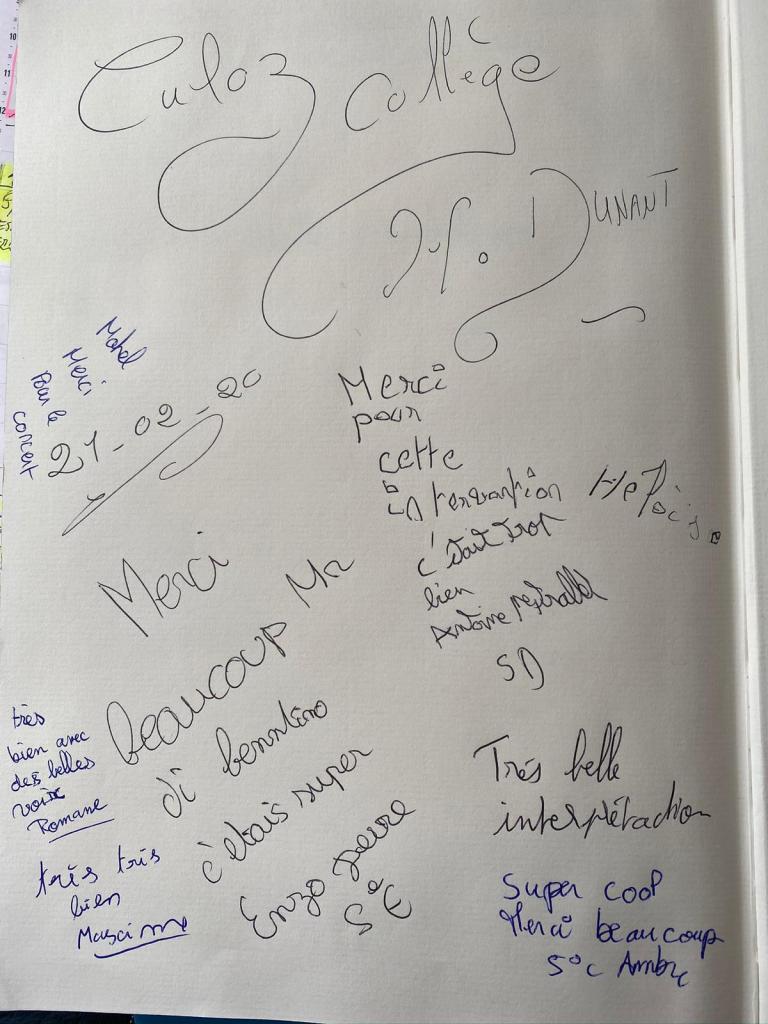 Culoz collège
H. DUNANT
Mahel
Merci
Pour le
concert
21-02-20
Merci
pour
cette
intervantion
c'était trop
bien
Antoine
5D
Héloïse
Merci
beaucoup Mr
di benntino
c'étais super
Enzo
5°E
très
bien avec
des belles
voix
Romane
très très
bien
Maxime
Très belle
interprétaction
Super cool
Merci beaucoup
5°c Ambre